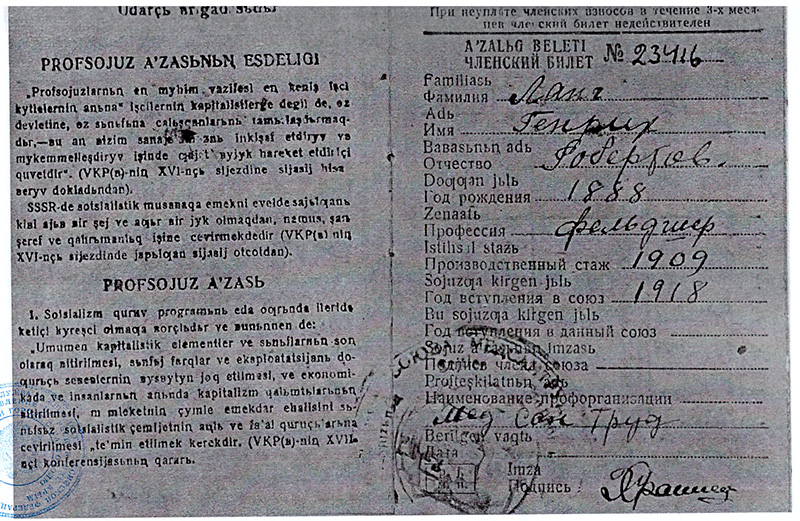 Udarçь Brigad
PROFSOJUZ A'ZASЬNЬꞐ ESDELIGI
„Profsojuzlarnьꞑ en myhim vazifesi en keniş işçi
kytlelerniꞑ anьna" işçilerniꞑ kapitalistlerge degil de, ɵz
devletine, ɵz sьnьfьna çalьşqanlarьnь
dьr,—bu an bizim inkişaf etdiryv ve
mykemmelleşdiryv işinde byjyk hareket etdirici
quvetdir". (VKP(b)-niꞑ XVI-nçь sijezdine sijasij
beryv dokladьndan).
SSSR-de sotsialistik musabaqa emekni evelde sajьlqanь
kibi ajьb bir şej ve aqьr bir jyk olmaqdan, namus, şan
şeref ve qahrьmanlьq işine çevirmekdedir (VKP(b)-niꞑ
XVI-nçь sijezdinde japьlqan sijasij otçotdan).
PROFSOJUZ A'ZASЬ
1. Sotsializm quruv programьnь eda oqrunda ileride
ketiçi kyreşçi olmaqa borçludьr ve bunьnnen de:
„Umumen kapitalistik elementler ve sьnьflarnьꞑ son
olaraq bitirilmesi, sьnfij farqlar ve eksploatatsijanь do-
qurьçь sebeplerniꞑ bysbytyn joq etilmesi, ve ekonomi-
kada ve insanlarnьꞑ aꞑьnda kapitalizm qalьntьlarьnьꞑ
bitirilmesi, memleketniꞑ çymle emekdar ehalisini sь-
nьfsьz sotsialistik cemijetniꞑ aꞑlь ve fa'al quruçьlarьna
çevirilmesi „te'min etilmek kerekdir. (VKP(b)-niꞑ XVII-
nçi konferensijasьnьꞑ qararь.
При неуплате членских взносов в течение 3-х меся-
цев членский билет недействителен
A'ZALЬQ BELETI
ЧЛЕНСКИЙ БИЛЕТ № 23416
Familiasь
Фамилия Ланг
Adь
Имя Генрих
Babasьnьꞑ adь
Отчество Робертов.
Doqqan jьlь
Год рождения 1888
Zenaatь
Профессия фельдшер
Istihsal stazь
Производственный стаж 1909
Sojuzqa kirgen jьlь
Год вступления в союз 1918
Bu sojuzqa kirgen jьlь
Год вступления в данный союз
Sojuz a'zasьnьꞑ imzasь
Подпись члена союза
Profteşkilatnьꞑ adь
Наименование профорганизации
Мед Сан Труд
Berilgen vaqtь
Дата
Imza
Подпись: